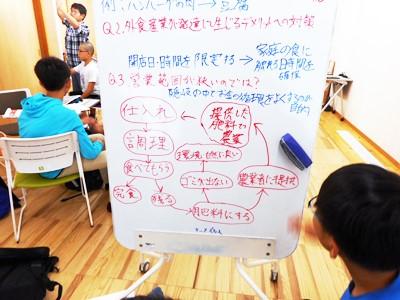 例、ハンバーグの肉→豆腐
Q.2.外食産業が発達して生じるデメリットへの対策
開店日・時間を限定する → 家庭の食に
触れる時間を
確保
Q.3.営業範囲が狭いのでは?
地域の中で本当の循環をよくするのが
目的
仕入れ
調理
食べてもらう
完食
残る
肥料にする
ゴミが出ない
環境に良い
農業者に提供
提供した
肥料で
農業